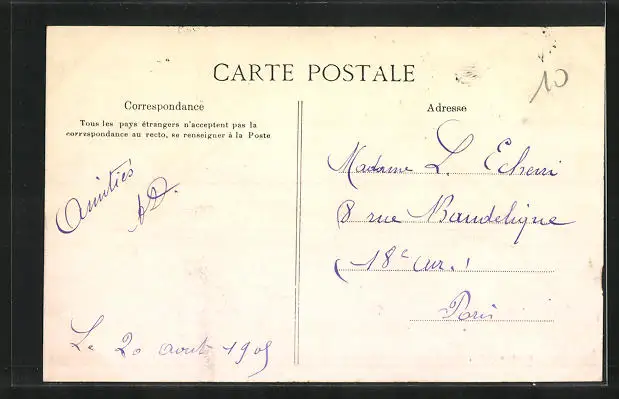 CARTE POSTALE
10
Correspondance
Tous les pays étrangers n'acceptent pas la
correspondance au recto, se renseigner à la Poste
Amitiés
Le 20 aout 1905
Adresse
Madame L.
8 rue Baudelique
18e arr.
Paris